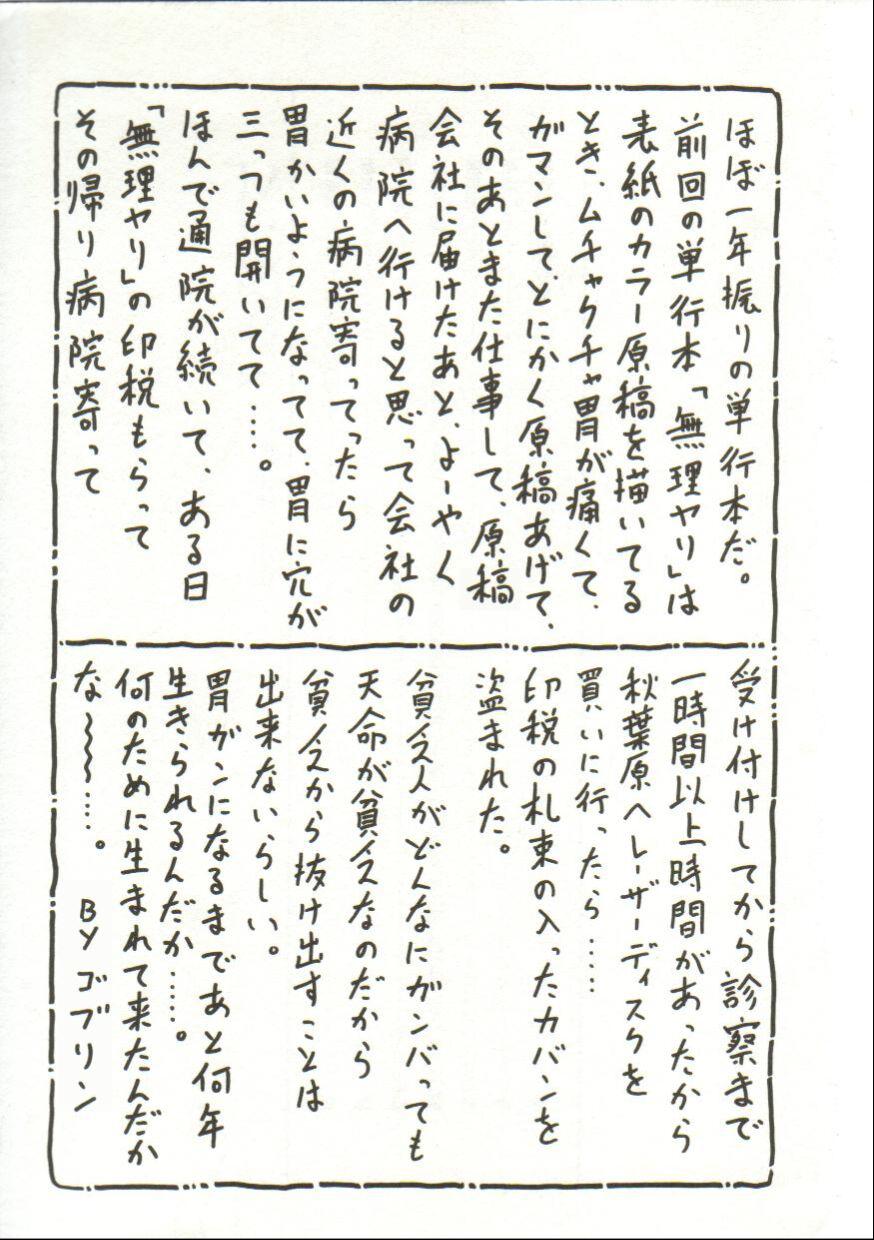 ほぼ一年振りの単行本だ。
前回の単行本「無理ヤリ」は
表紙のカラー原稿を描いてる
とき、ムチャクチャ胃が痛くて、
ガマンして、とにかく原稿あげて、
そのあとまた仕事して、原稿
会社に届けたあと、よーやく
病院へ行けると思って会社の
近くの病院寄ってったら
胃かいようになってて、胃に穴が
三っつも開いてて‥‥。
ほんで通院が続いて、ある日
「無理ヤリ」の印税もらって
その帰り病院寄って
受け付けしてから診察まで
一時間以上時間があったから
秋葉原へレーザーディスクを
買いに行ったら‥‥‥
印税の札束の入ったカバンを
盗まれた。
貧乏人がどんなにガンバっても
天命が貧乏なのだから
貧乏から抜け出すことは
出来ないらしい。
胃ガンになるまであと何年
生きられるんだか‥‥‥。
何のために生まれて来たんだか
な〜〜〜‥‥。 BYゴブリン